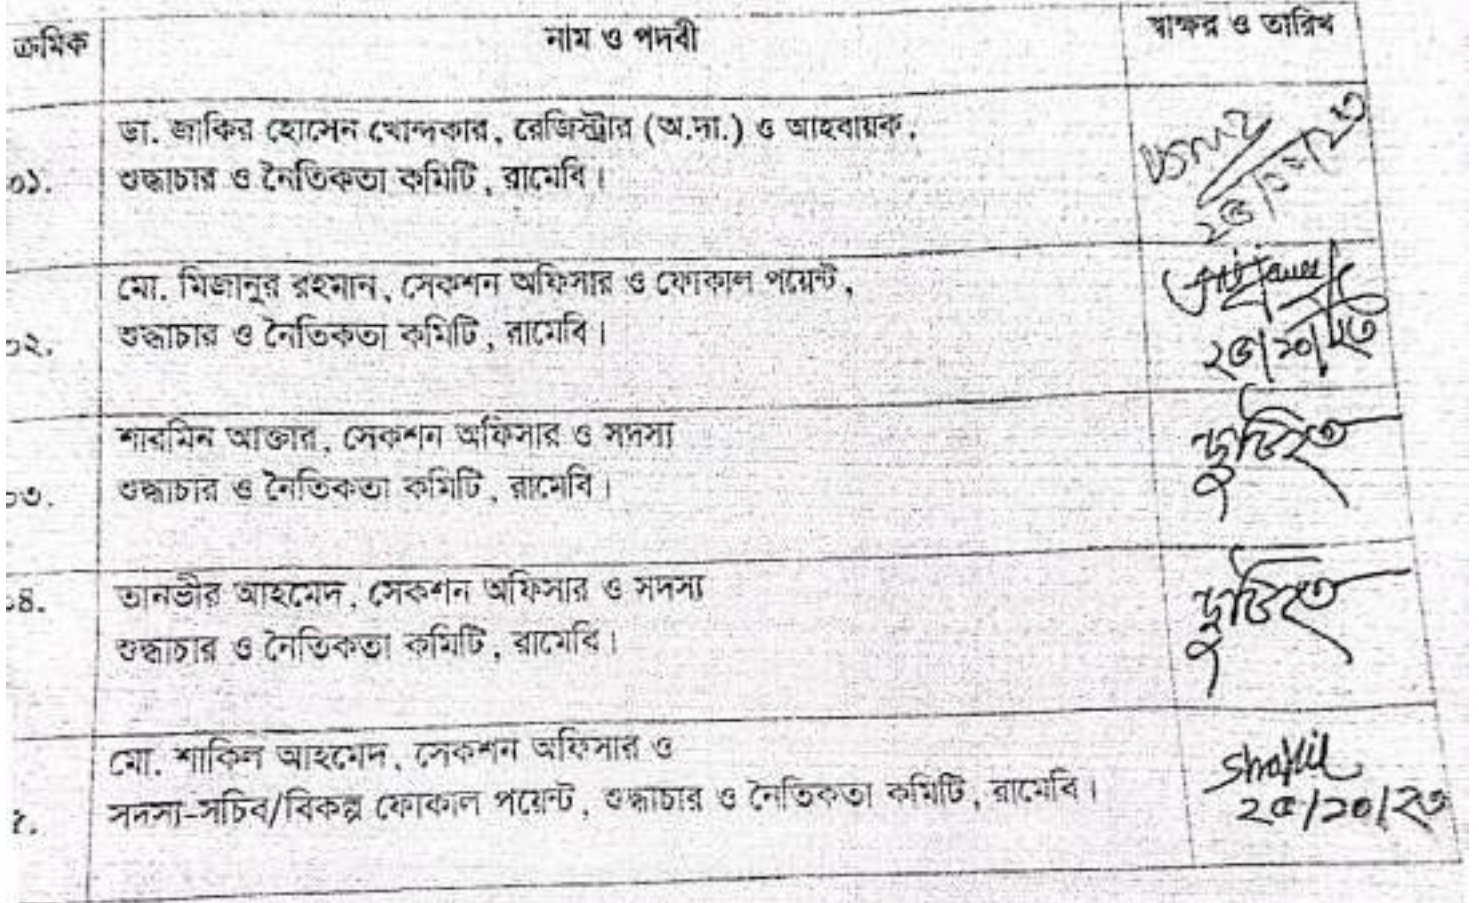 ক্রমিক নাম ও পদবী স্বাক্ষর ও তারিখ
ডা. জাকির হোসেন খোন্দকার, রেজিস্ট্রার (অ.দা.) ও আহবায়ক,
০১. শুদ্ধাচার ও নৈতিকতা কমিটি, রামেবি।
২৫/১০/২৩
মো. মিজানুর রহমান, সেকশন অফিসার ও ফোকাল পয়েন্ট,
০২. শুদ্ধাচার ও নৈতিকতা কমিটি, রামেবি।
২৫/১০/২৩
শারমিন আক্তার, সেকশন অফিসার ও সদস্য
০৩. শুদ্ধাচার ও নৈতিকতা কমিটি, রামেবি।
তানভীর আহমেদ, সেকশন অফিসার ও সদস্য
০৪. শুদ্ধাচার ও নৈতিকতা কমিটি, রামেবি।
মো. শাকিল আহমেদ, সেকশন অফিসার ও
সদস্য-সচিব/বিকল্প ফোকাল পয়েন্ট, শুদ্ধাচার ও নৈতিকতা কমিটি, রামেবি।
Shakil
২৫/১০/২৩